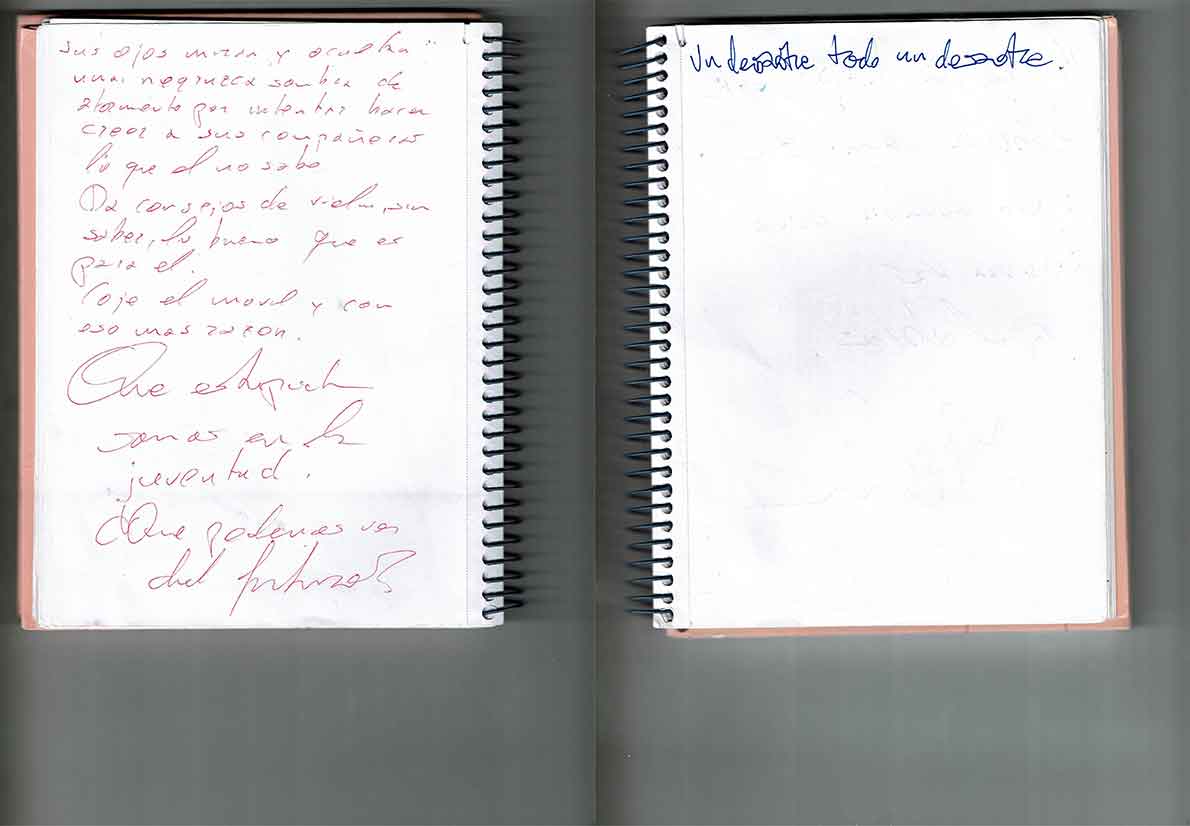 sus ojos miran y ocultan
una negruzca sombra de
atormento por intentar hacer
creer a sus compañeros
lo que el no sabe
Da consejos de vida, sin
saber, lo bueno que es
para el.
Coje el movil y con
eso mas razon.
Que estupidos
somos en la
juventud.
¿Que podemos ver
del futuro?
Un desastre todo un desastre.